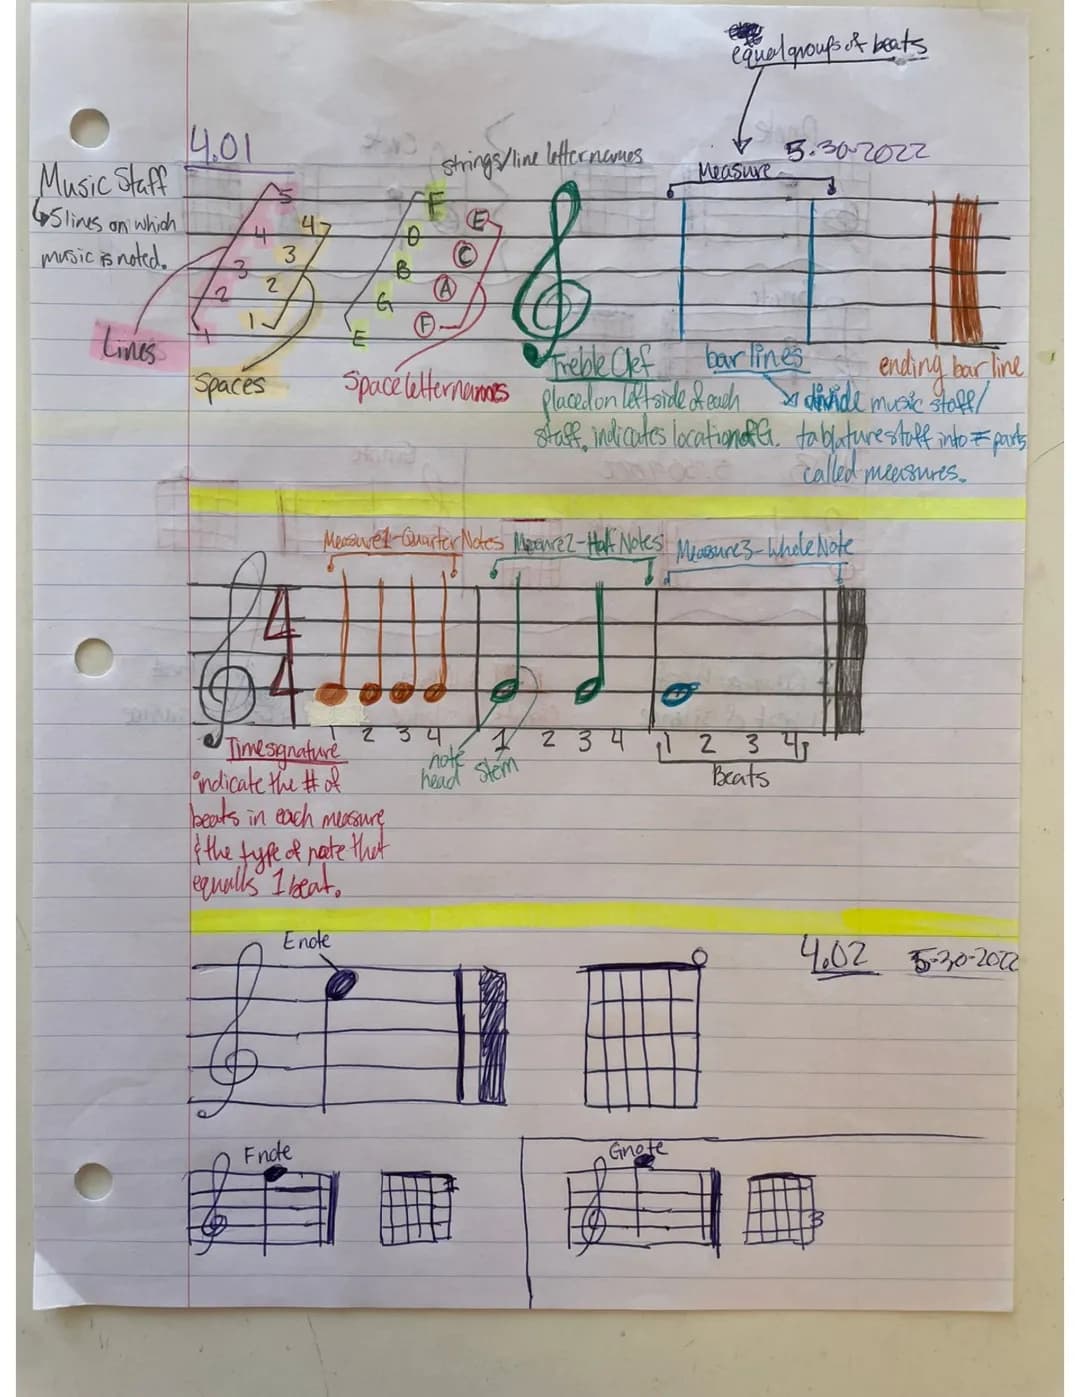 equal groups of beats
4.01
5.30.2022
strings/line letter names
Measure
Music Staff
↳ 5 lines on which
music is noted.
5
4
3
2
1
4
3
2
1
F
D
B
G
E
E
C
A
F
Lines
Spaces
Space letter names
Treble Clef
placed on left side of each
staff, indicates location of G.
bar lines
↘ divide music staff/
tablature staff into = parts
called measures.
ending bar line
Measure 1 - Quarter Notes
Measure 2 - Half Notes
Measure 3 - Whole Note
4
4
1 2 3 4 1 2 3 4 1 2 3 4
note
head
stem
Beats
Time signature
indicate the # of
beats in each measure
& the type of note that
equalls 1 beat.
E note
4.02
5-30-2022
F note
1
G note
3